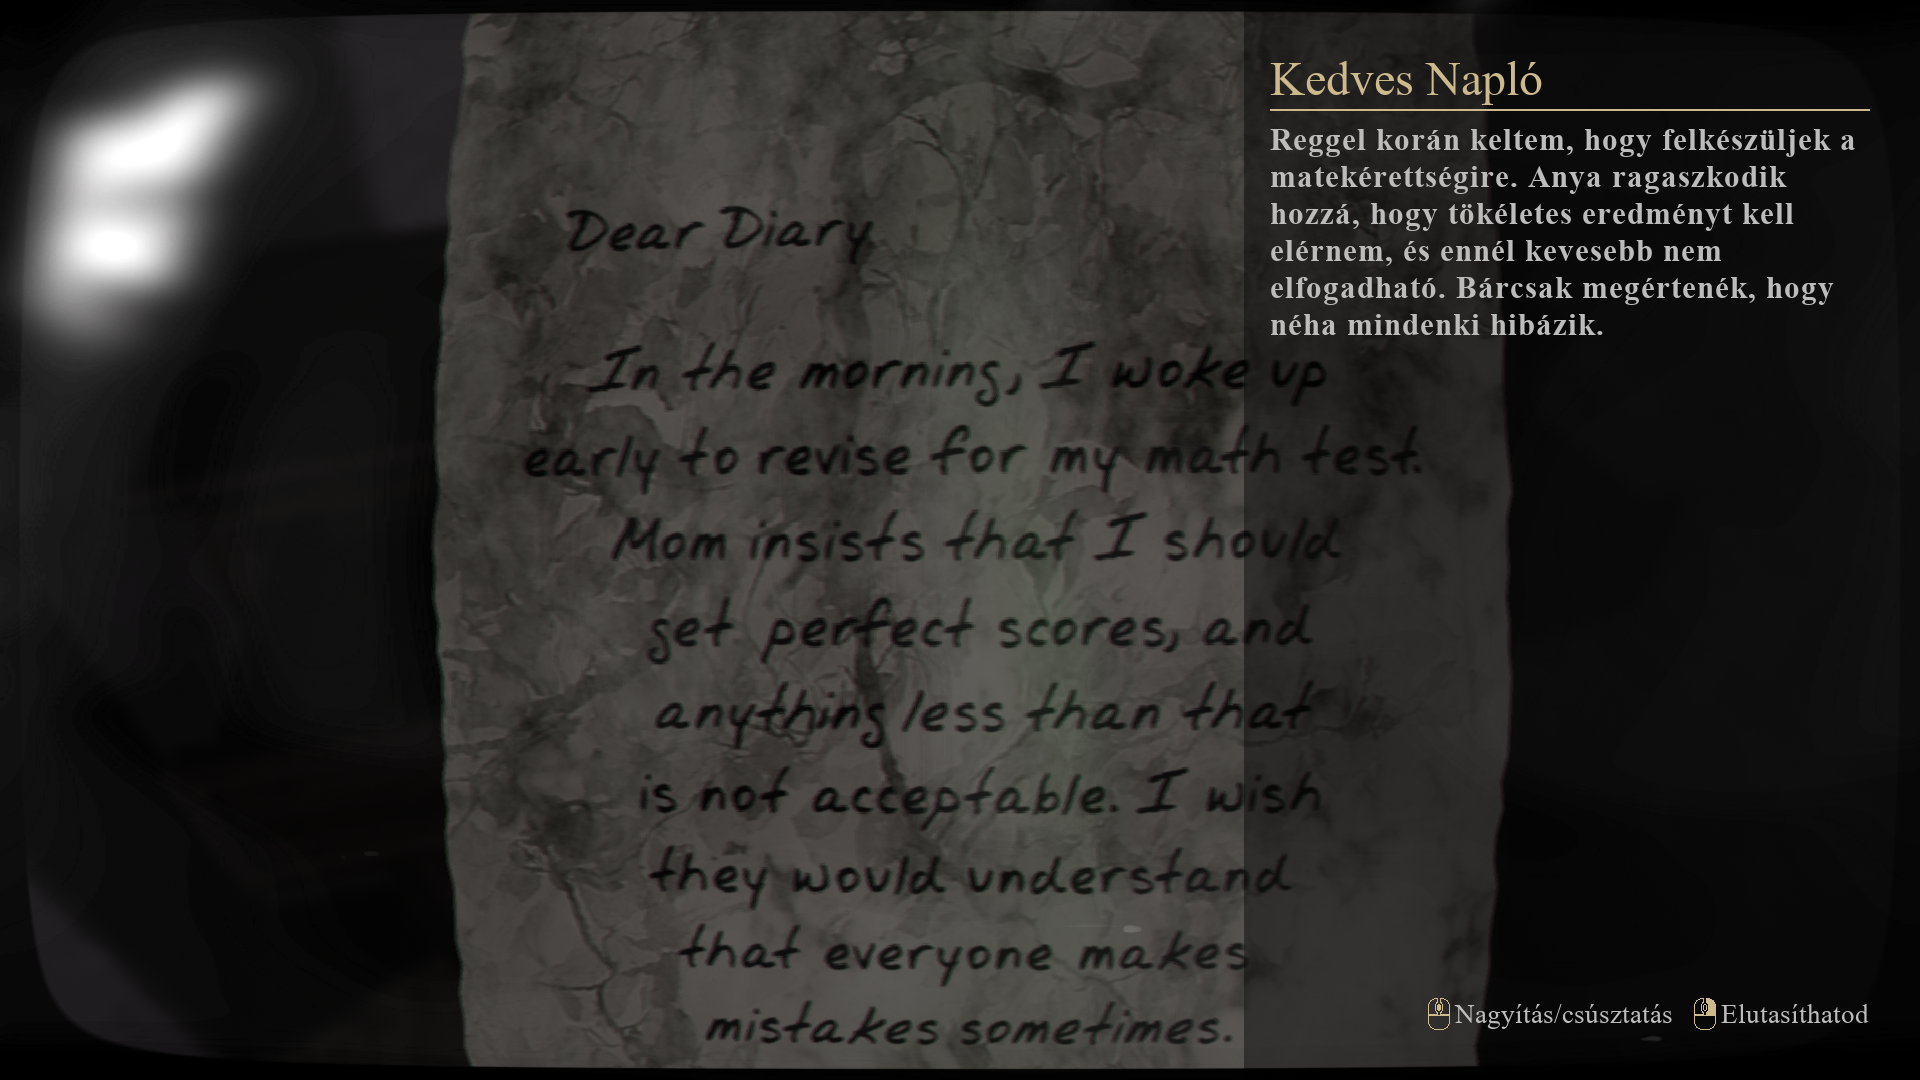 Dear Diary
In the morning, I woke up
early to revise for my math test.
Mom insists that I should
get perfect scores, and
anything less than that
is not acceptable. I wish
they would understand
that everyone makes
mistakes sometimes.
Kedves Napló
Reggel korán keltem, hogy felkészüljek a
matekérettségire. Anya ragaszkodik
hozzá, hogy tökéletes eredményt kell
elérnem, és ennél kevesebb nem
elfogadható. Bárcsak megértenék, hogy
néha mindenki hibázik.
Nagyítás/csúsztatás Elutasíthatod